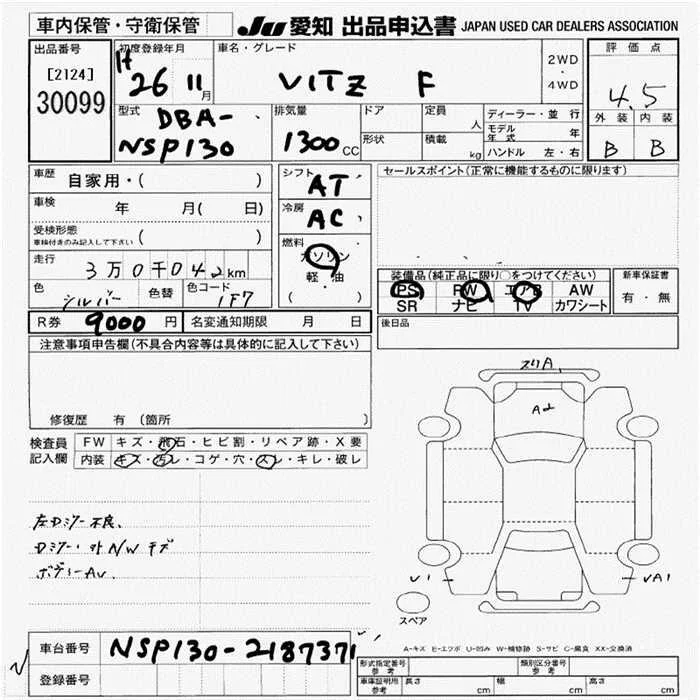 車内保管・守衛保管
JU 愛知 出品申込書 JAPAN USED CAR DEALERS ASSOCIATION
出品番号
[2124]
30099
初度登録年月
H 26 11月
車名・グレード
VITZ F
2WD
・
4WD
評価点
4.5
外装 内装
B B
型式
DBA-
NSP130
排気量
1300 CC
ドア
形状
定員 人
積載 kg
ディーラー・並行
モデル年式 年
ハンドル 左・右
車歴 自家用・( )
車検 年 月( 日)
受検形態
車検付きのみ記入して下さい ( )
走行 3万0千042km
色 シルバー 色替 色コード 1F7
シフト
AT
冷房
AC
燃料
ガソリン
軽・油
( )
セールスポイント(正常に機能するものに限ります)
装備品(純正品に限り○をつけてください)
PS PW エアB AW
SR ナビ TV カワシート
新車保証書
有・無
後日品
R券 9000 円 名変通知期限 月 日
注意事項申告欄(不具合内容等は具体的に記入して下さい)
修復歴 有 (箇所 )
検査員 FW キズ・飛石・ヒビ割・リペア跡・X要
記入欄 内装 キズ・汚レ・コゲ・穴・スレ・キレ・破レ
左Dミラー不良、
Dミラー・外N/Wキズ
ボディーAU.
スリA
A2
U1
UA1
スペア
A-キズ E-エクボ U-凹み W-補修跡 S-サビ C-腐食 XX-交換済
車台番号 NSP130-2187371
登録番号
型式指定番号 参考
類別区分番号 参考
車庫証明用 参考 長さ cm 幅 cm 高さ cm